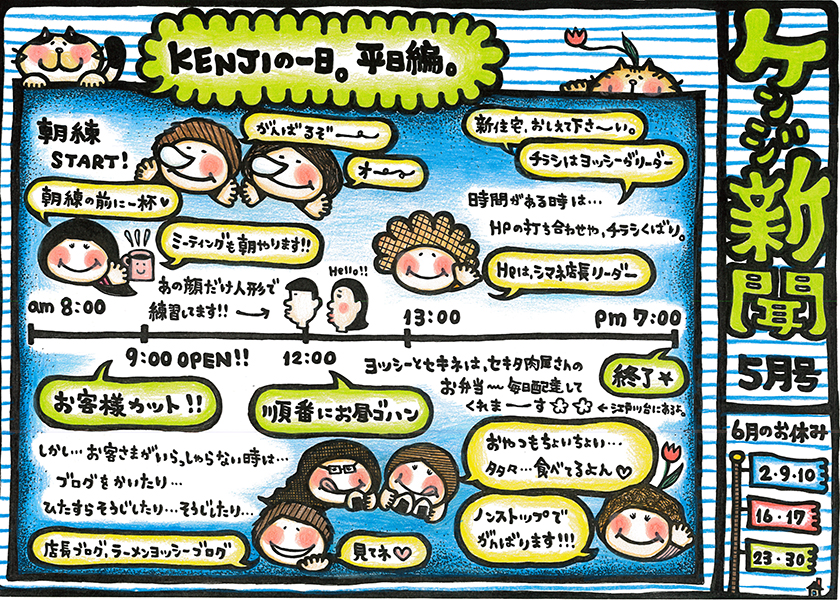 KENJIの一日。平日編。
ケンジ新聞
5月号
朝練
START!
がんばるぞー
オー
朝練の前に一杯♥
ミーティングも朝やります!!
新住宅、おしえて下さ〜い。
チラシはヨッシーがリーダー
時間がある時は…
HPの打ち合わせや、チラシくばり。
HPは、シマネ店長リーダー
あの顔だけ人形で
練習してます!! →
Hello!!
am 8:00
9:00 OPEN!!
12:00
13:00
pm 7:00
お客様カット!!
順番にお昼ゴハン
ヨッシーとセキネは、セキタ肉屋さんの
お弁当〜毎日配達して
くれま〜す
←江戸川台にあるよ。
終了★
しかし…お客さまがいらっしゃらない時は…
ブログをかいたり…
ひたすらそうじしたり…そうじしたり…
店長ブログ、ラーメンヨッシーブログ
見てネ♡
おやつもちょいちょい…
タタ々…食べてるよん♡
ノンストップで
がんばります!!!
6月のお休み
2・9・10
16・17
23・30